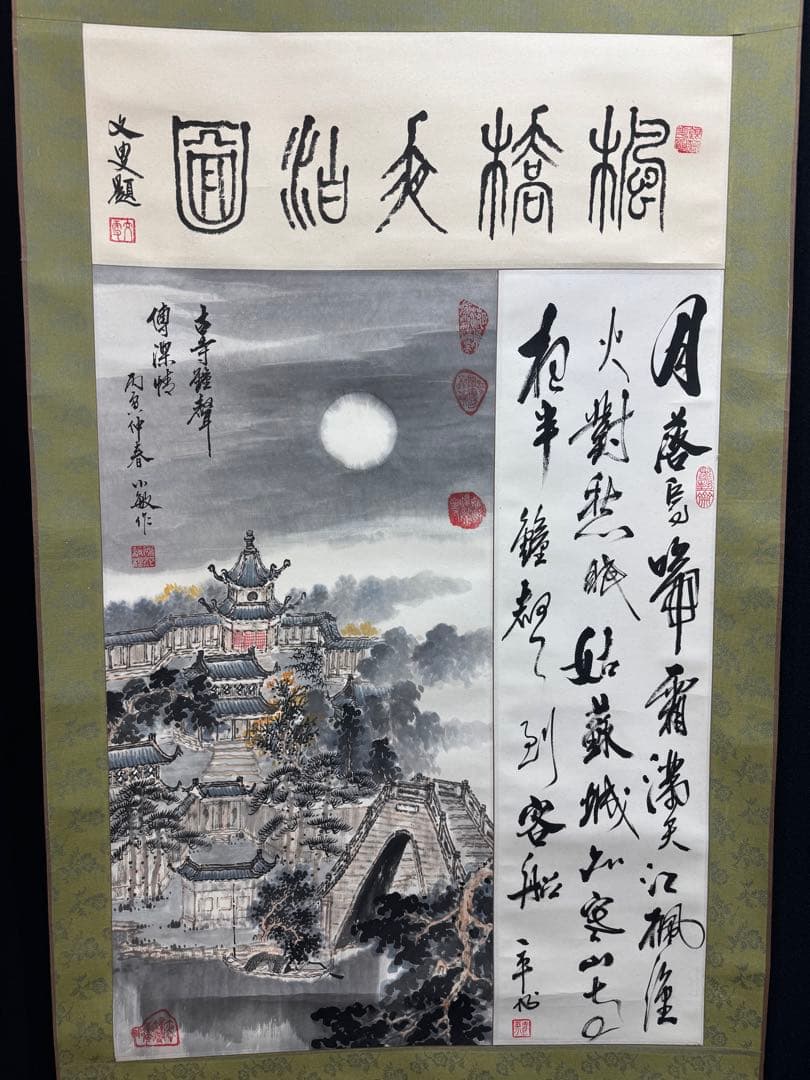 楓橋夜泊圖
文叟題
月落烏啼霜滿天江楓漁
火對愁眠姑蘇城外寒山寺
夜半鐘聲到客船
古寺鐘聲
傳深情
丙寅仲春 小敏作